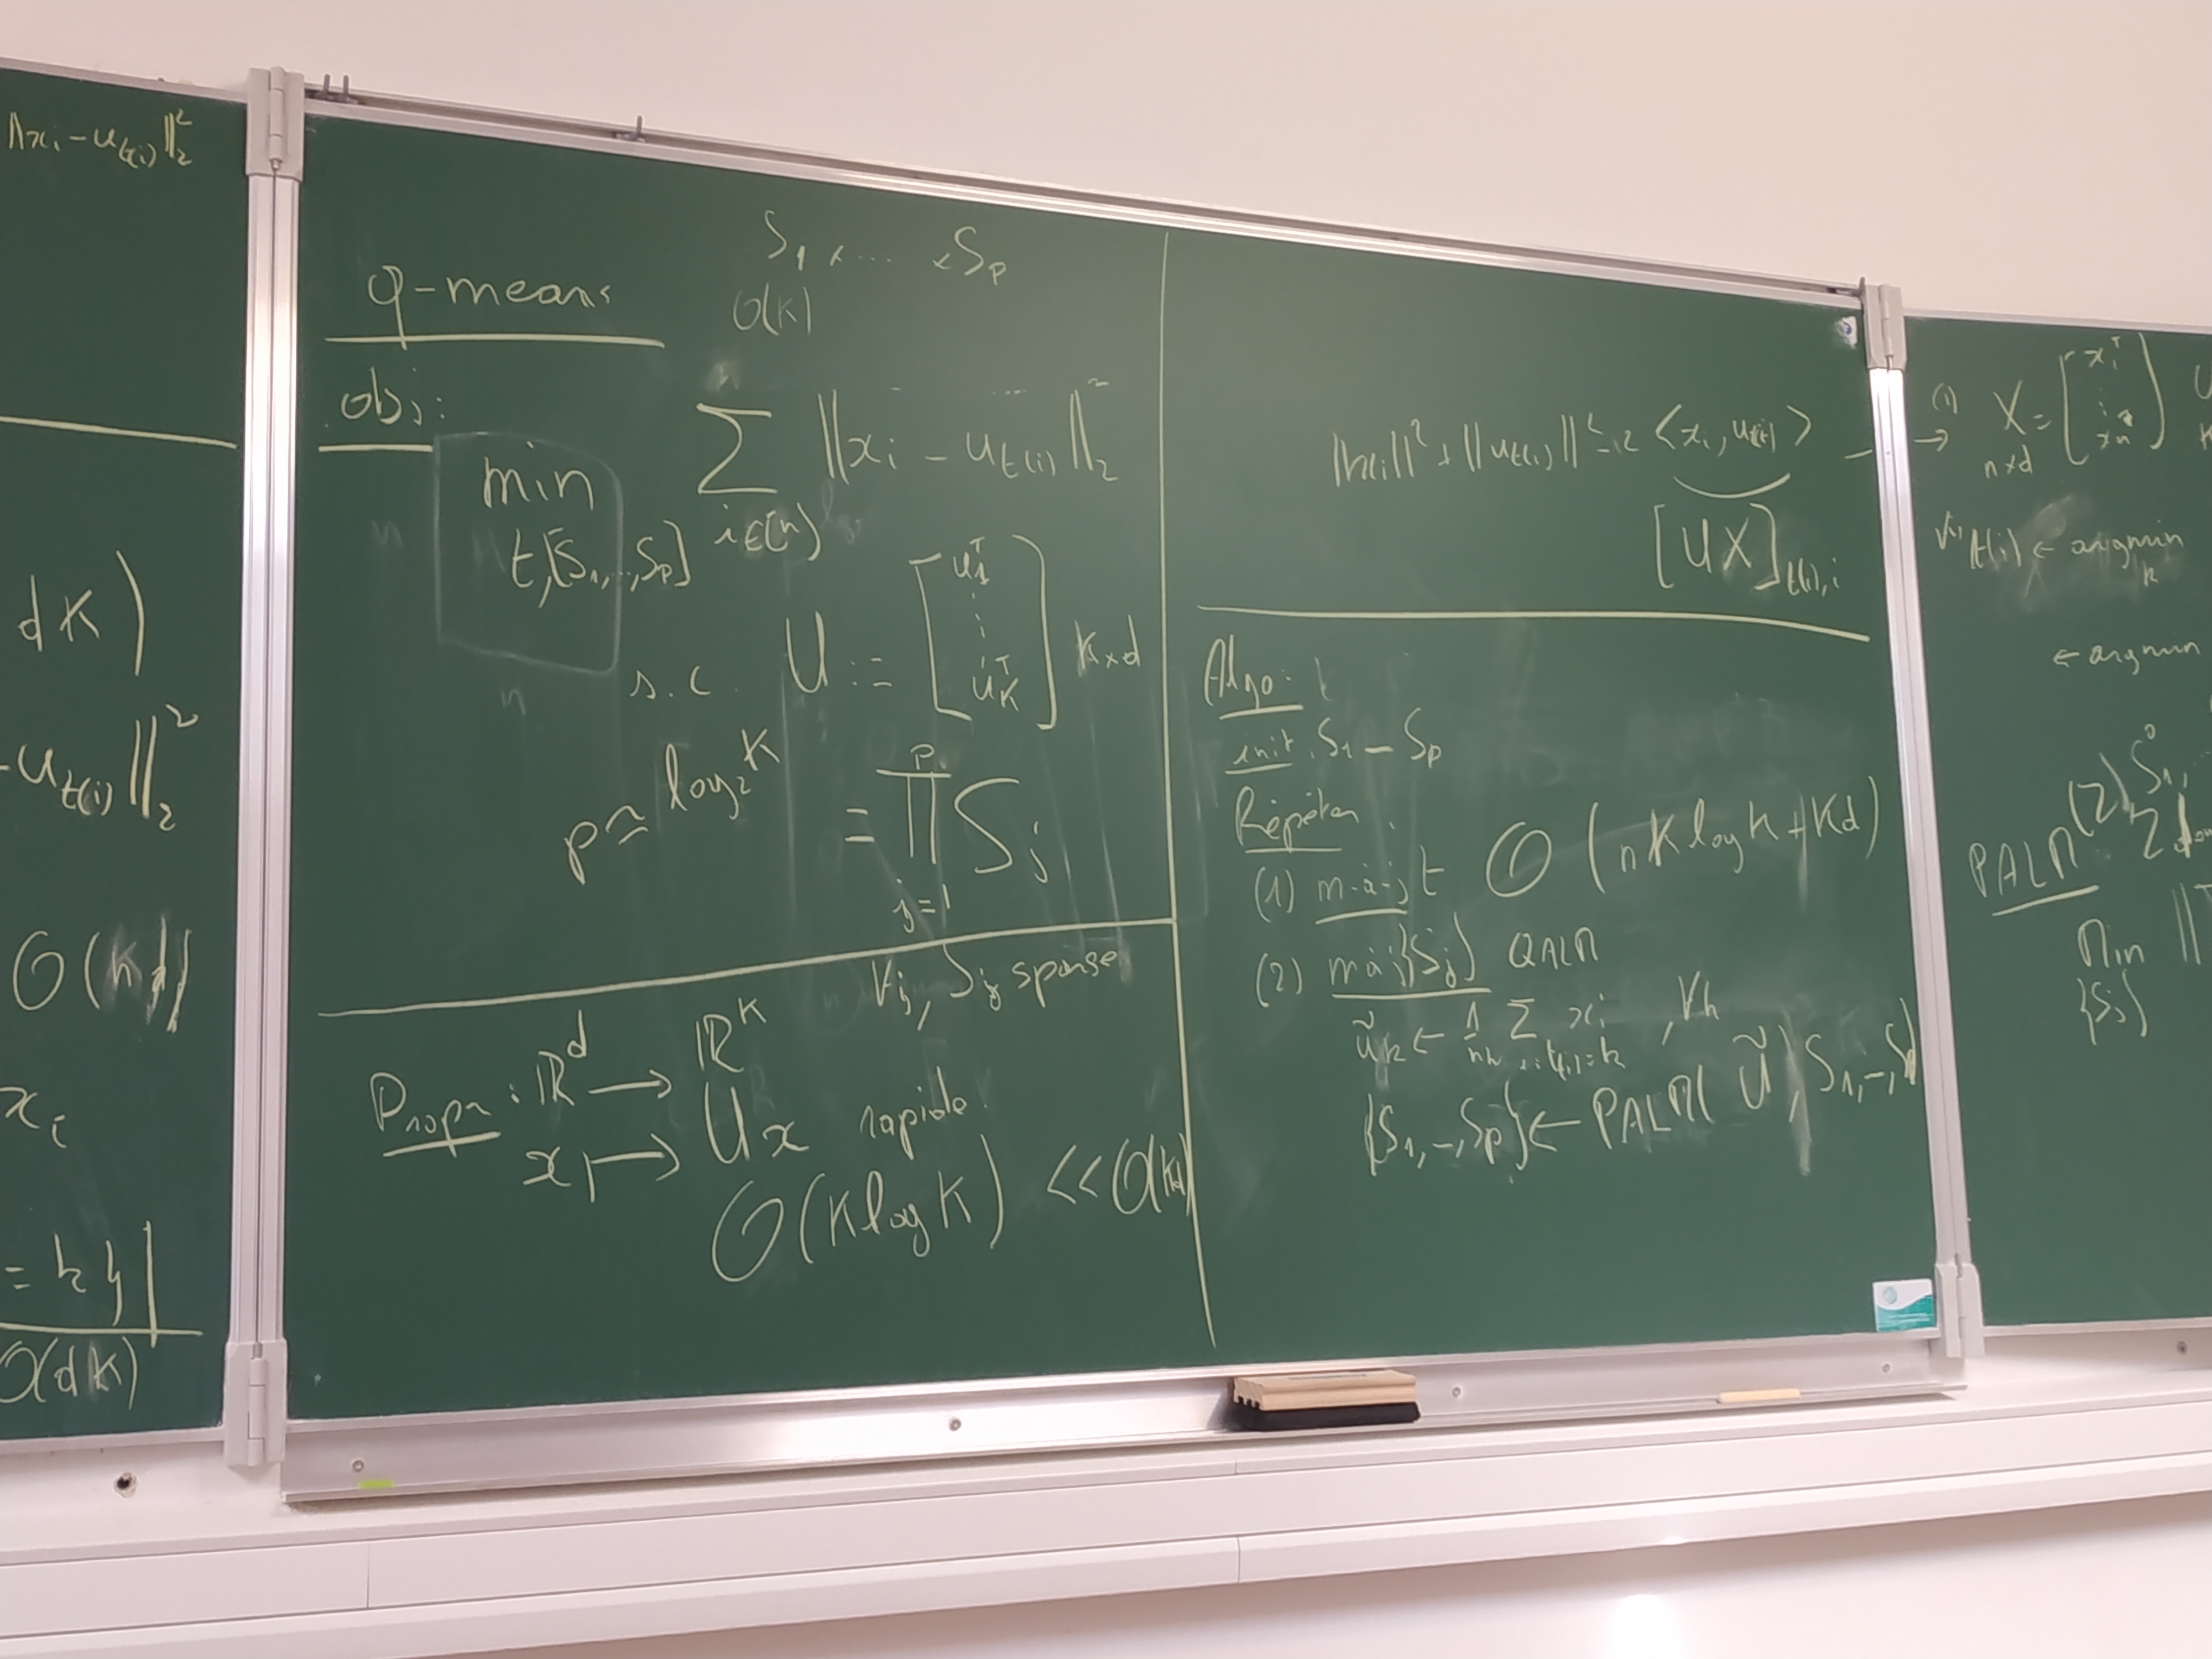 ‖x_i - u_{t(i)}‖_2^2
dK)
- u_{t(i)}‖_2^2
O(Kd)
x_i
= k}|
O(dK)
q-means
S_1 × ... × S_p
O(K)
obj:
min_{t,[S_1,..,S_p]} Σ_{i∈[n]} ‖x_i - u_{t(i)}‖_2^2
s.c. U := [u_1^T ⋮ u_K^T] K×d
p ≃ log_2 K
= ∏_{j=1}^{p} S_j
∀j, S_j sparse
Propr : ℝ^d → ℝ^K
x ↦ Ux rapide
O(K log K) << O(Kd)
‖x_i‖^2 + ‖u_{t(i)}‖^2 - 2 <x_i, u_{t(i)}>
[UX]_{t(i),i}
Algo:
init. S_1 - S_p
Répéter :
(1) m-à-j t O(nK log K + Kd)
(2) màj {S_j} QALM
ũ_k ← 1/n_k Σ_{i:t(i)=k} x_i , ∀k
{S_1,-,S_p} ← PALM( Ũ, S_1,-,S_p)
(1) → X = [x_1^T ⋮ x_n^T]
n×d
t(i) ← argmin_k
← argmin
(2) S_1^0,
PALM:
Min ‖
{S_j}